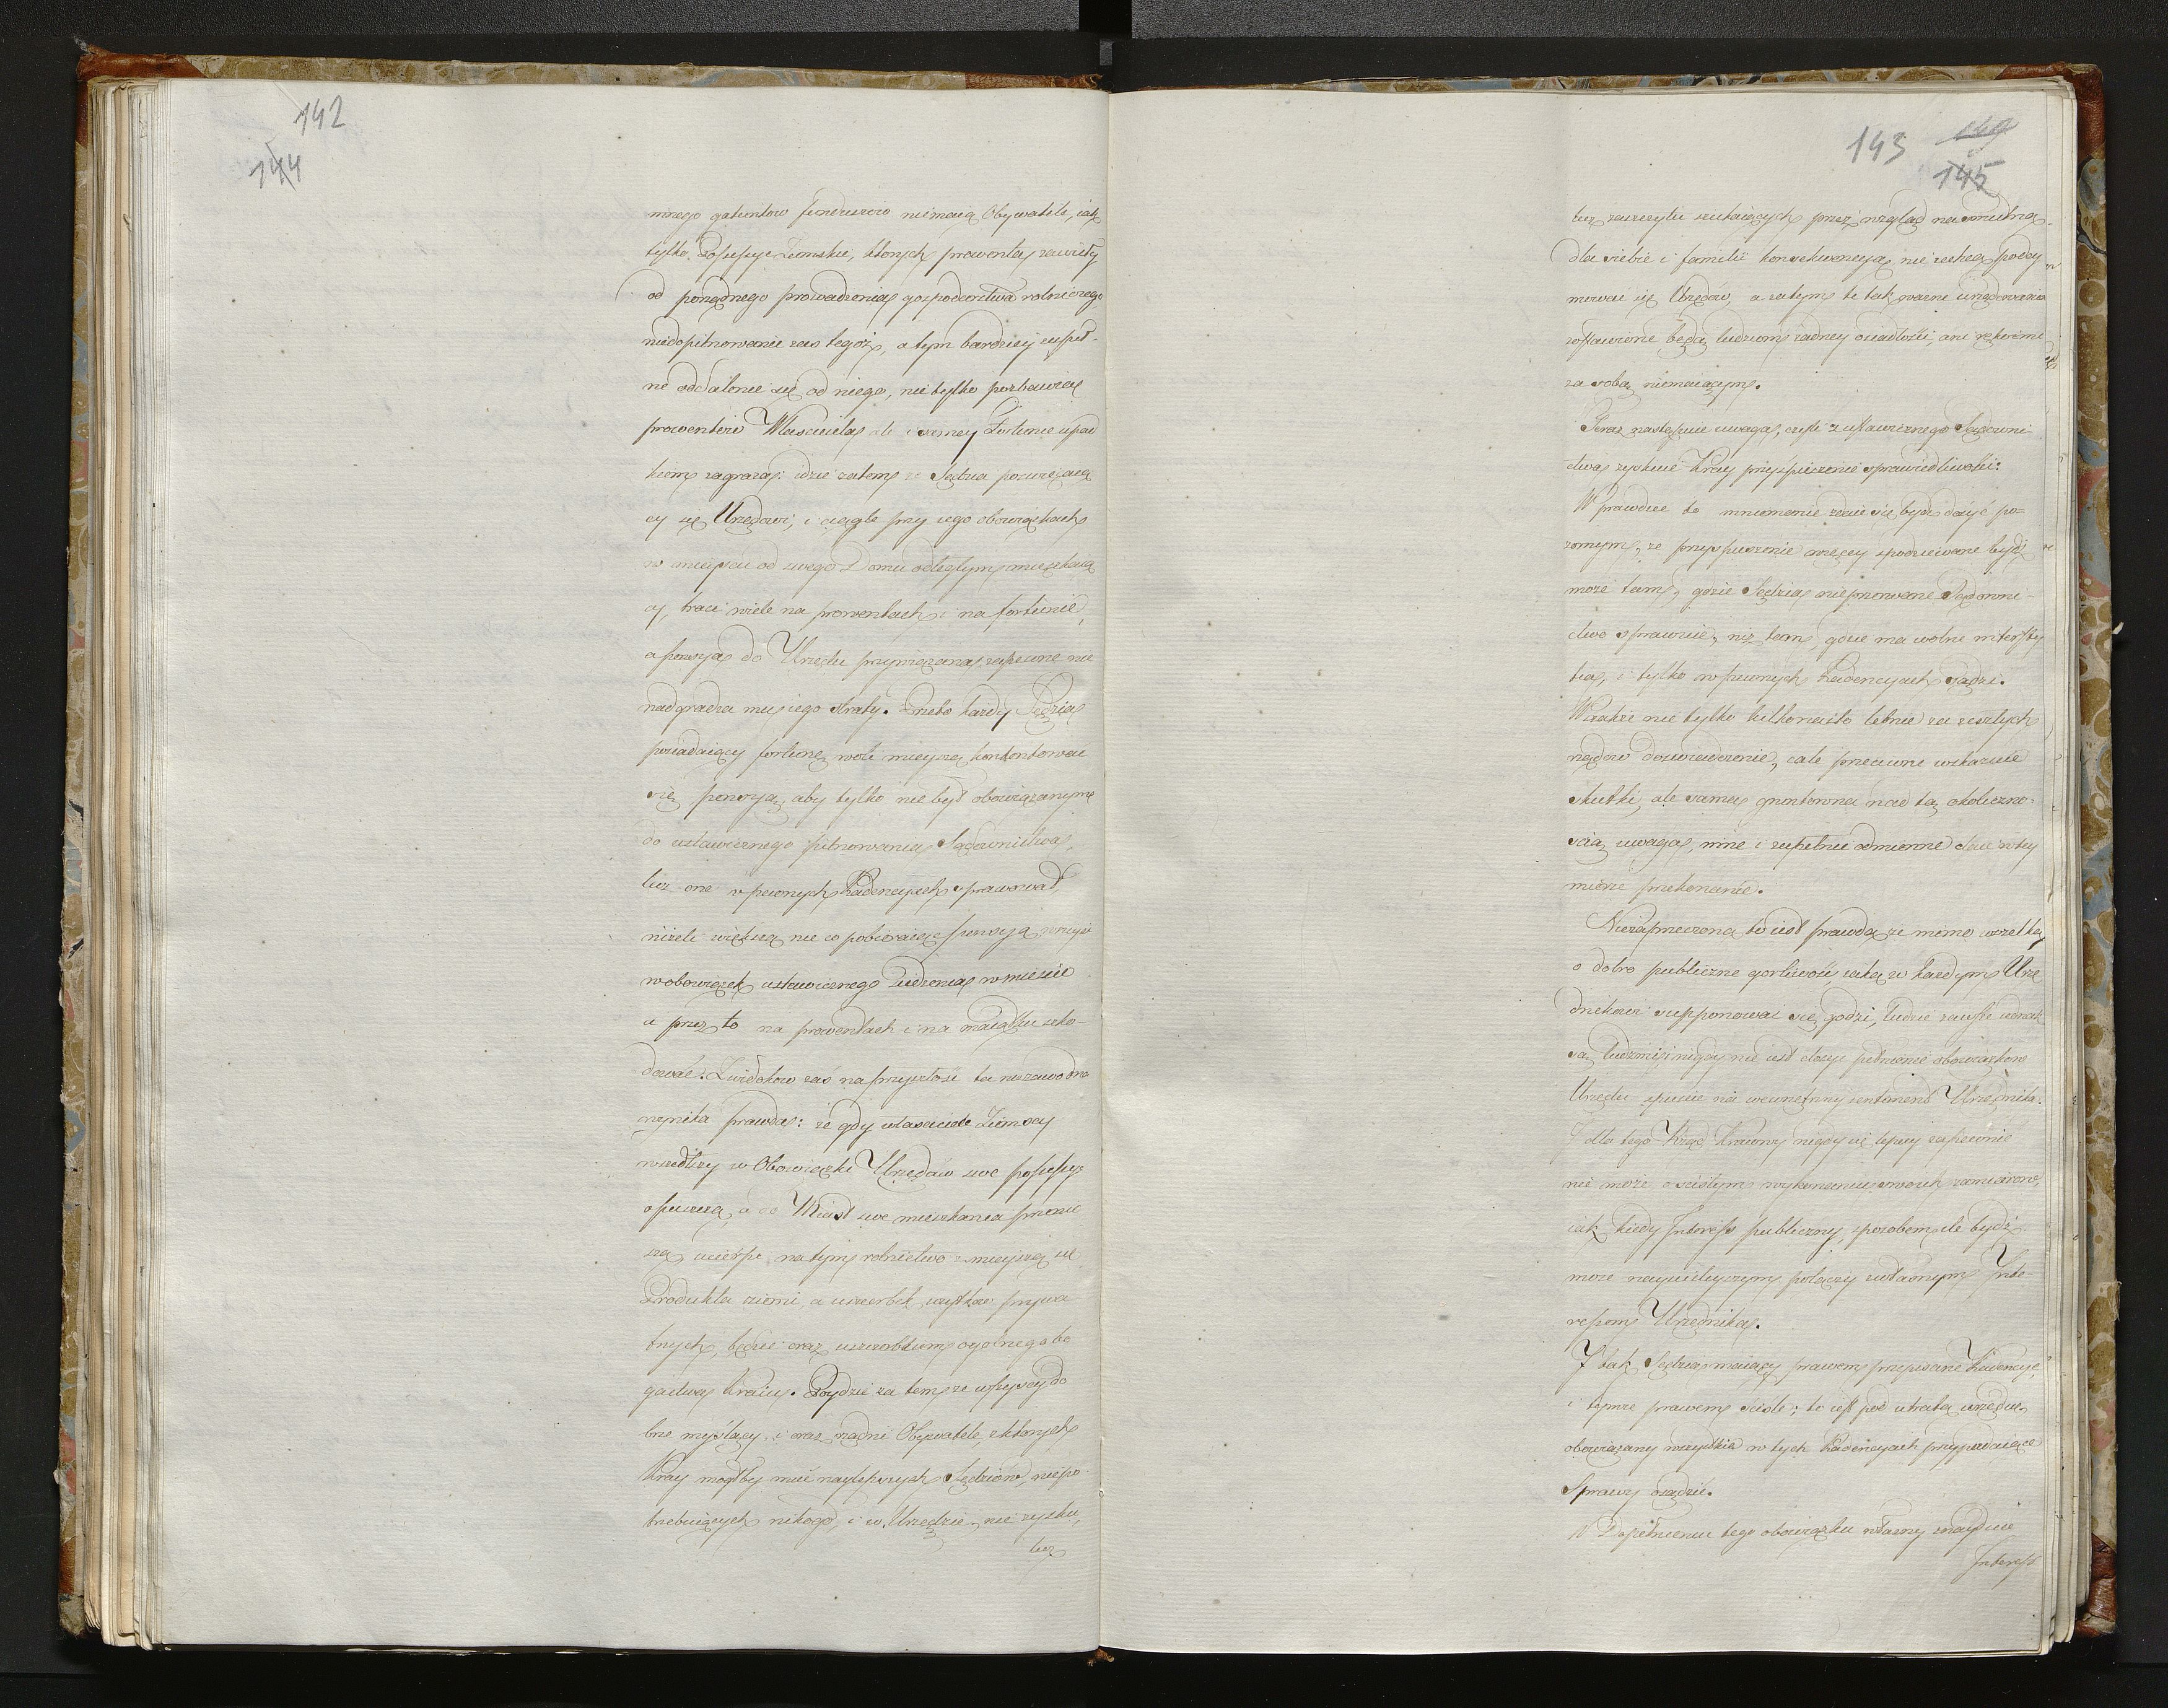 142
144
innego gatunkow funduszow niemaią Obywatele, iak
tylko Possessye Ziemskie, ktorych prowenta zawisły
od porządnego prowadzenia gospodarstwa rolniczego
niedopilnowanie zas tegoż, a tym bardziey zupeł-
ne oddalenie się od niego, nie tylko pozbawia
prowentow Własciciela ale i samey Fortunie upad
kiem zagraża: idzie zatem ze Sędzia poswięcaią
cy się Urzędowi, i ciągle przy iego obowiązkach
w mieyscu od swego Domu odległym mieszkaią
cy, traci wiele na prowentach i na fortunie,
a pensya do Urzędu przywiązana zapewne nie
nadgradza mu iego straty. Przeto każdy Sędzia
posiadaiący fortunę woli mnieyszą kontentować
się pensyą, aby tylko nie był obowiązanym
do ustawicznego pilnowania Sądownictwa,
lecz one w pewnych Kadencyach sprawował,
niżeli większą nieco pobieraiąc pensyą
w obowiązek ustawicznego siedzenia w miescie
a przez to na prowentach i na maiątku szko-
dować. Z widokow zaś na przyszłość ta niezawodna
wynika prawda: że gdy własciciele Ziemscy
wszedłszy w Obowiązki Urzędów swe possessye
opuszczą, a do Miast swe mieszkania przenio
są ucierpi na tym rolnictwo zmnieyszą się
Produkta ziemi, a uszczerbek zysków prywa
tnych, będzie oraz uszczerbkiem ogolnego bo
gactwa Kraiu. Poydzie za tem ze wszyscy do
brze myślący i oraz rządni Obywatele, z ktorych
Kray mogłby mieć naylepszych Sędziów, niepo-
trzebuiących nikogo, i w Urzędzie nie zysku,
lecz
143
149
145
lecz zaszczytu szukaiących przez wzgląd na smutną
dla siebie i familii konsekwencyą nie zechcą podey
mować się Urzędów, a zatym te tak ważne urzędowania
zostawione będą ludziom żadney osiadłości, ani rękoimi
za sobą niemaiącym.
Teraz następuie uwaga, czyli z ustawicznego Sądowni
ctwa zyskuie Kray przyspieszenie sprawiedliwości:
W prawdzie to mniemanie zdaie się bydź dosyć po-
zornym, ze przyspieszenie więcey spodziewane bydź
może tam, gdzie Sędzia nieprzerwane Sądowni-
ctwo sprawuie, niż tam, gdzie ma wolne intersty
tia, i tylko w pewnych Kadencyach sądzi.
Wszakże nie tylko kilkonasto letnie za zeszłych
rządow doswiadczenie, całe przeciwne wskazuie
skutki, ale sama gruntowna nad tą okoliczno-
scią uwaga, inne i zupełnie odmienne daie w tey
mierze przekonanie.
Niezaprzeczona to iest prawda że mimo wszelką
o dobro publiczne gorliwość, iaką w każdym Urzę
dnikowi supponować się godzi, ludzie zawsze iednak
są ludzmi, i nigdy nie iest dosyć pełnienie obowiązkow
Urzędu spuscić na wewnętrzny sentiment Urzędnika.
I dla tego Rząd Kraiowy nigdy się lepiey zapewnić
nie może o scisłym wykonaniu swoich zamiarow,
iak kiedy Interess publiczny, sposobem ile bydź
może nayscisleyszym połączy z własnym Inte-
resem Urzędnika.
I tak Sędzia maiący prawem przepisane Kadencye,
i tymże prawem ściśle, to iest pod utratą urzędu
obowiązany wszystkie w tych Kadencyach przypadaiące
Sprawy osądzić.
W Dopełnieniu tego obowiązku własny znayduie
Interess